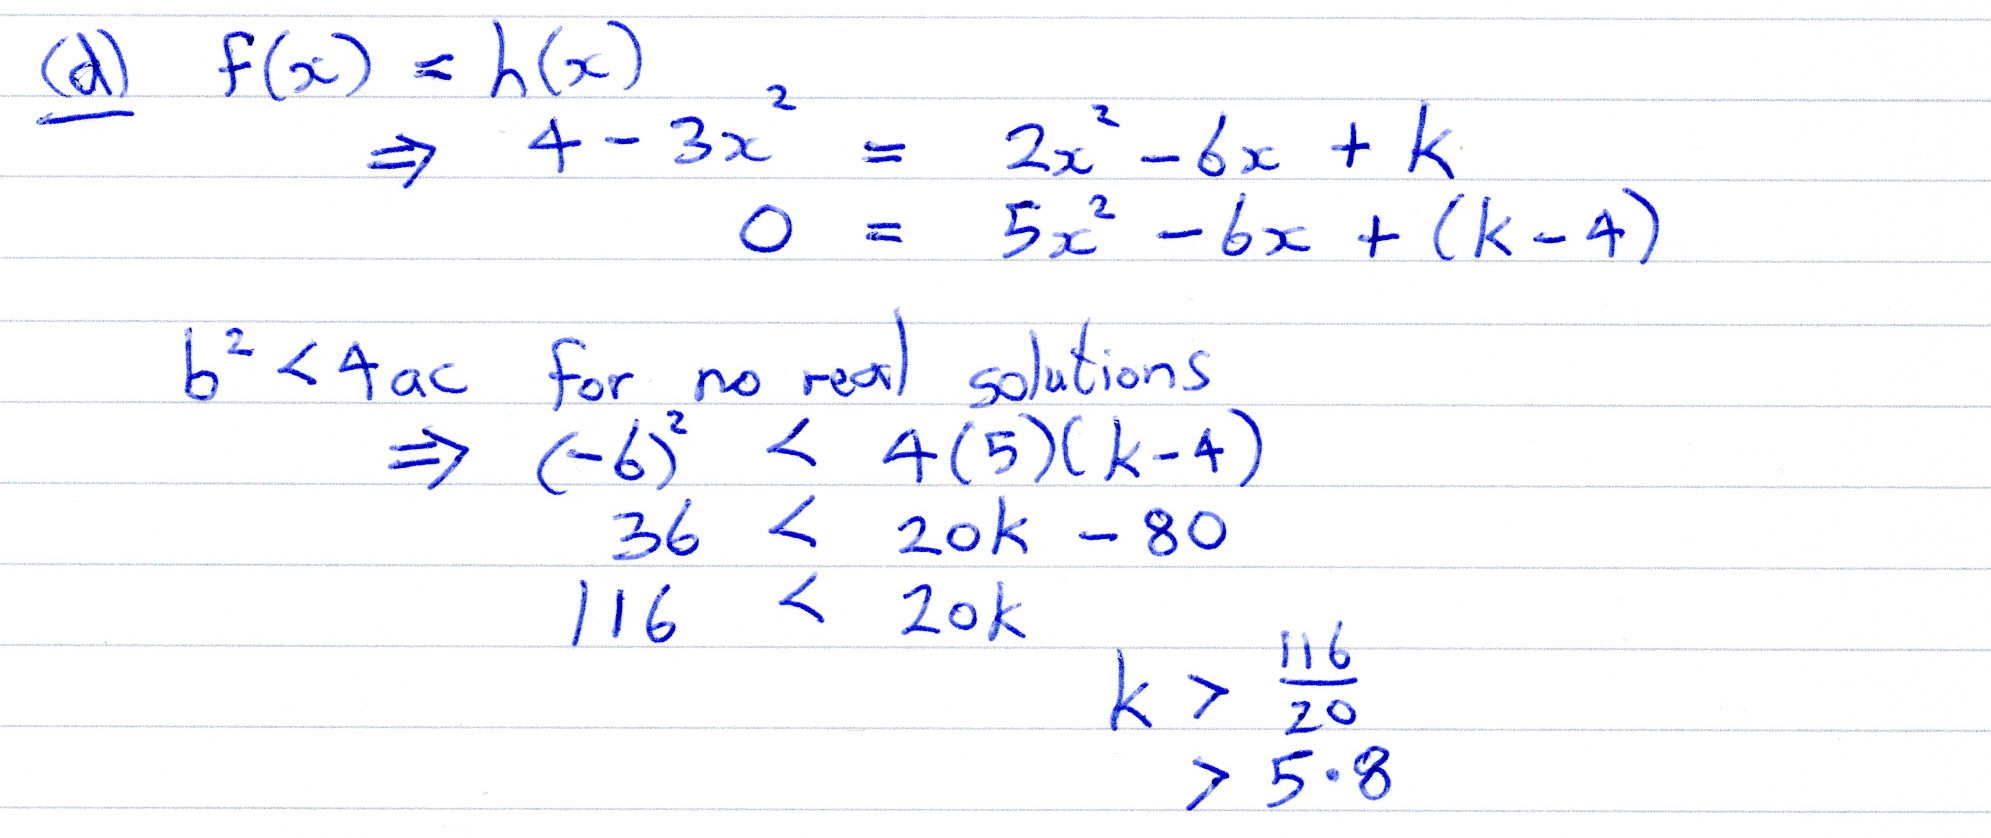 (d) f(x) = h(x)
⇒ 4 - 3x² = 2x² - 6x + k
0 = 5x² - 6x + (k - 4)
b² < 4ac for no real solutions
⇒ (-6)² < 4(5)(k-4)
36 < 20k - 80
116 < 20k
k > 116/20
> 5·8